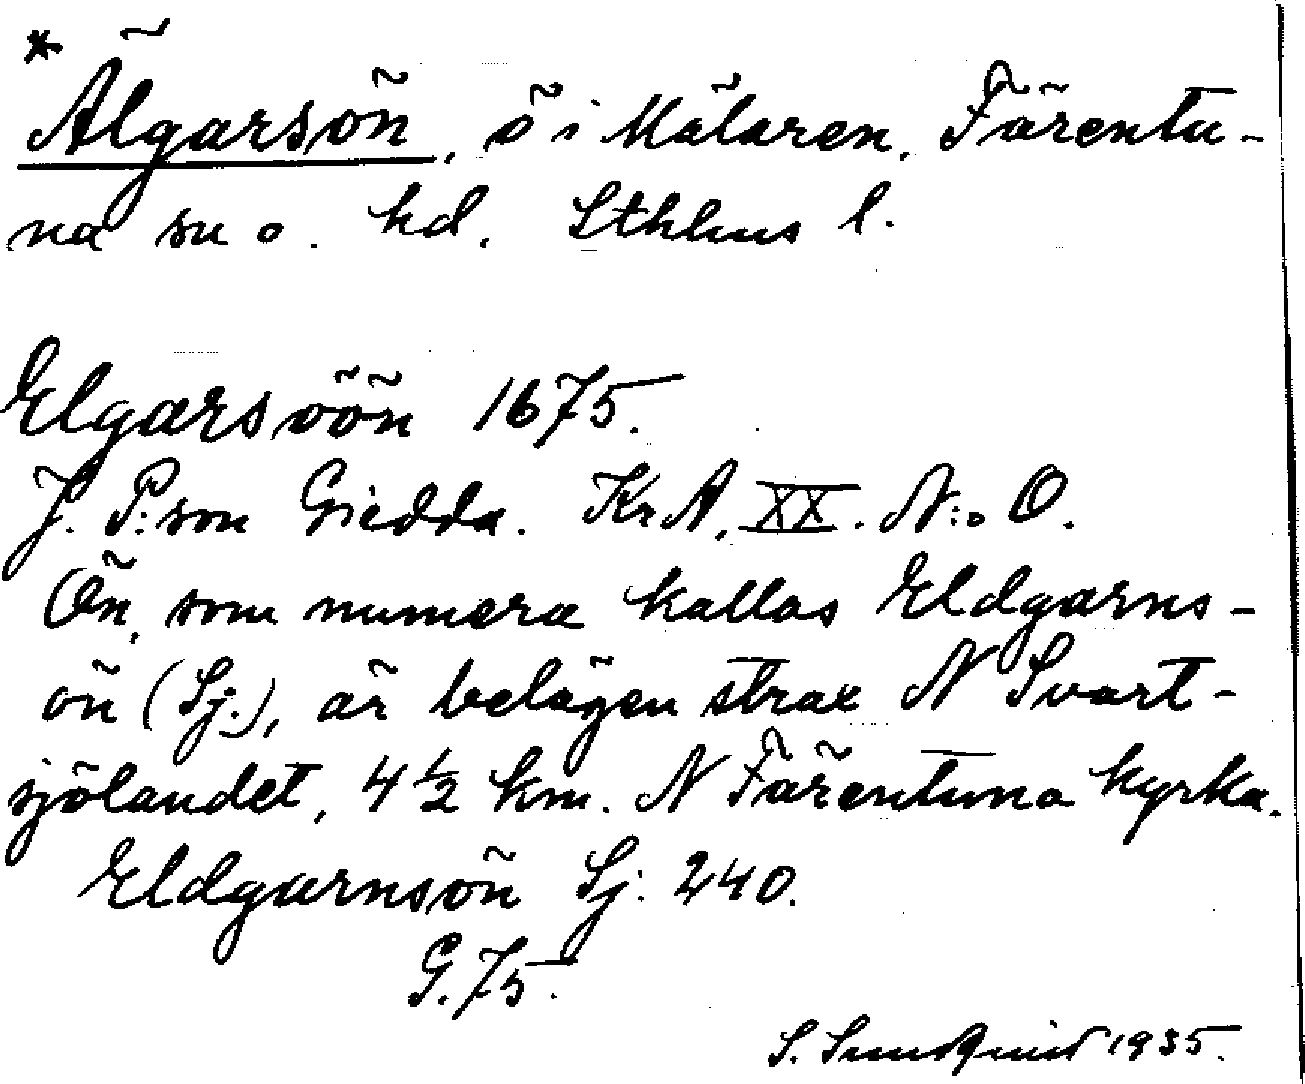 * Älgarsön, ö i Mälaren, Färentu-
na sn o. hd. Sthlms l.
Elgarsöön 1675.
J. P:son Giedda. KrA, XX. N:o O.
Ön, som numera kallas Eldgarns-
ön (Sj.), är belägen strax N Svart-
sjölandet, 4 1/2 km. N Färentuna kyrka.
Eldgarnsön Sj. 240.
G. 75.
S. Sundquist 1935.